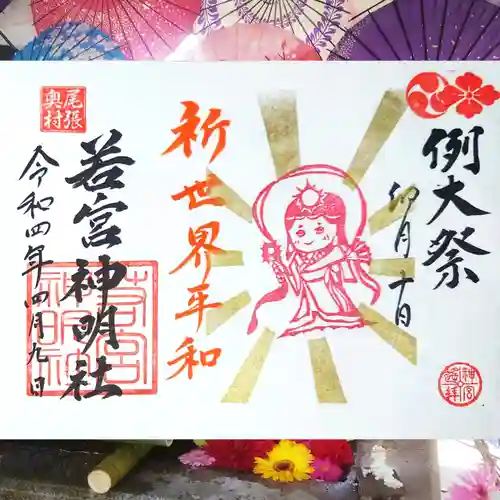 例大祭
卯月十日
祈世界平和
尾張
奥村
若宮神明社
令和四年四月九日